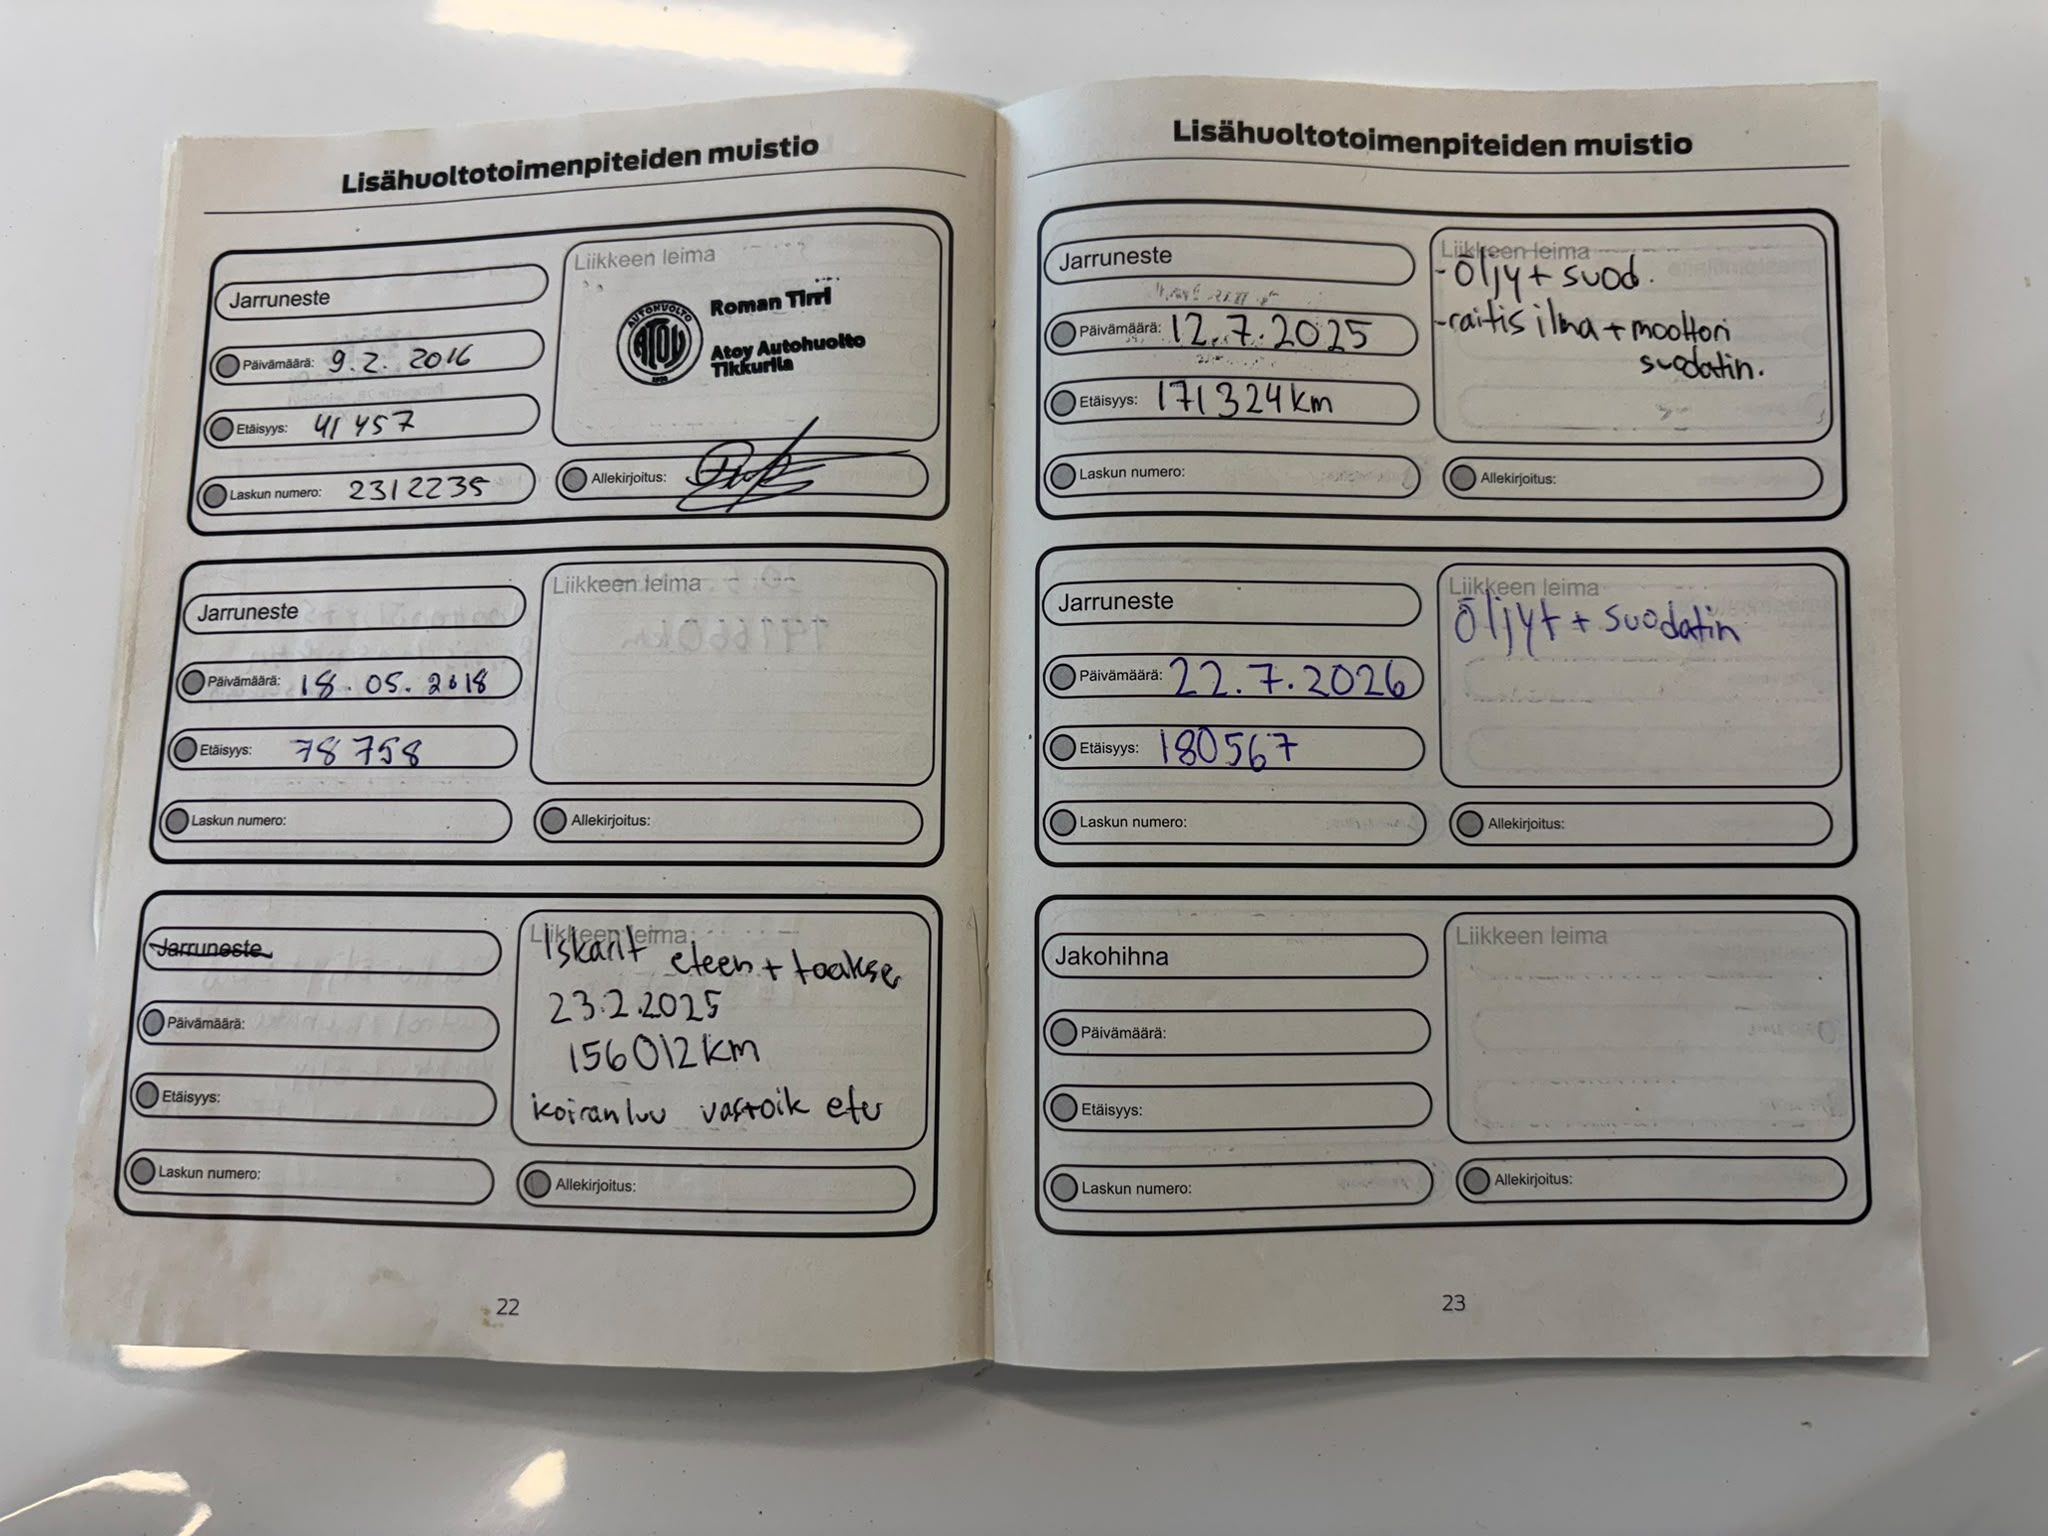 Lisähuoltotoimenpiteiden muistio
Jarruneste
Päivämäärä: 9.2.2016
Etäisyys: 41 457
Laskun numero: 2312235
Liikkeen leima
AUTOHUOLTO
ATOY
Roman Tirri
Atoy Autohuolto
Tikkurila
Allekirjoitus:
Jarruneste
Päivämäärä: 18.05.2018
Etäisyys: 78 758
Laskun numero:
Liikkeen leima
Allekirjoitus:
Jarruneste
Päivämäärä:
Etäisyys:
Laskun numero:
Liikkeen leima
Iskarit eteen + taakse
23.2.2025
156012 km
koiranluu vas+oik etu
Allekirjoitus:
22
Lisähuoltotoimenpiteiden muistio
Jarruneste
Päivämäärä: 12.7.2025
Etäisyys: 171324 km
Laskun numero:
Liikkeen leima
- Öljy + suod.
- raitis ilma + moottori
suodatin.
Allekirjoitus:
Jarruneste
Päivämäärä: 22.7.2026
Etäisyys: 180567
Laskun numero:
Liikkeen leima
Öljyt + suodatin
Allekirjoitus:
Jakohihna
Päivämäärä:
Etäisyys:
Laskun numero:
Liikkeen leima
Allekirjoitus:
23